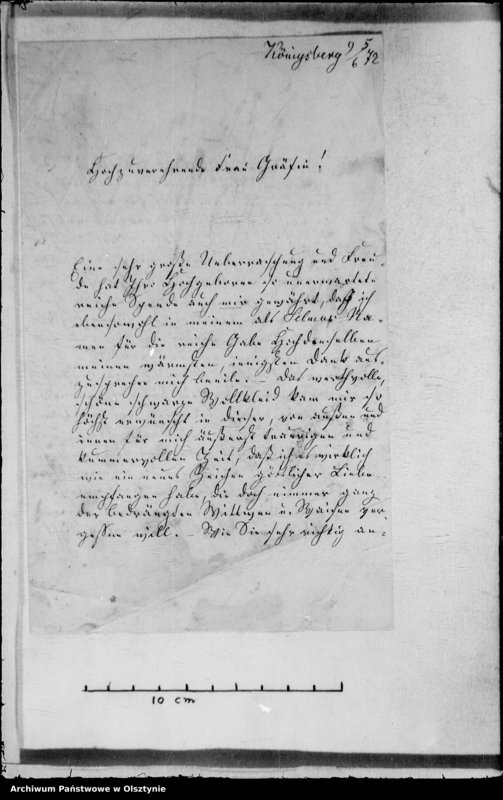 Königsberg 9/6 72
Hochzuverehrende Frau Gräfin!
Eine sehr große Ueberraschung und Freu-
de hat Ihro Hochgeboren so unerwartete
reiche Spende auch mir gewährt, daß ich
ebensowohl in meinem als Selmas Na-
men für die reiche Gabe Hochdenselben
meinen wärmsten, innigsten Dank aus-
zusprechen mich beeile. – Das werthvolle,
schöne schwarze Wollkleid kam mir so
höchst erwünscht in dieser, von außen und
innen für mich äußerst traurigen und
kummervollen Zeit, daß ich es wirklich
wie ein neues Zeichen göttlicher Liebe
empfangen habe, die doch nimmer ganz
der bedrängten Wittwen u. Waisen ver-
gessen will. – Wie Sie sehr richtig an-
10 cm
Archiwum Państwowe w Olsztynie